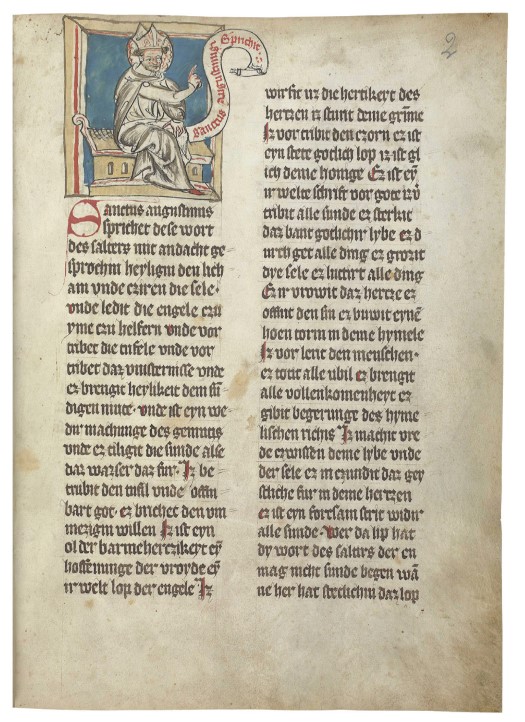 Sanctus augustinus Sprichit
2
Sanctus augustinus
sprichet dese wort
des salters mit andacht ge
sprochin heyligin den lich
am vnde cziren die sele ·
vnde ledit die engele czu
yme czu helfern vnde vor
tribet die tufele vnde vor
tribet daz vinsternisse vnde
er brengit heylikeit dem sun
digen mite · vnde ist eyn we
dir machunge des gemutis
vnde er tiligit die sunde alse
daz wasser daz fur · Iz be
trubit den tufil vnde offin
bart got · er brichet den vm
mezigin willen Iz ist eyn
ol der barmehertzikeyt eyn
hoffenunge der vroyde eyn
ir welt lop der engele Iz
wirfit uz die hertikeyt des
hertzen iz stunt deme grimme
Iz vor tribit den czorn ez ist
eyn stete gotlich lop iz ist gl
ich deme honige Ez ist eyn
ir welte schrift vor gote iz v
tribit alle sunde ez sterkit
daz bant gotlicher lybe ez d
urch get alle ding ez grozit
dye sele ez lutirt alle ding
Ez ir vrowit daz hertze ez
offint den sin ez buwit eynen
hoen torm in deme hymele
Iz vor lent den menschen ·
ez totit alle ubil ez brengit
alle vollenkomenheyt ez
gibit begerunge des hyme
lischen richs Iz machit vre
de czwissen deme lybe vnde
der sele ez in czundit daz gey
stliche fur in deme hertzen
ez ist eyn sorcsam strit widir
alle sunde · Wer da lip hat
dy wort des salters der en
mag nicht sunde begen wan
ne her hat stetlichin daz lop